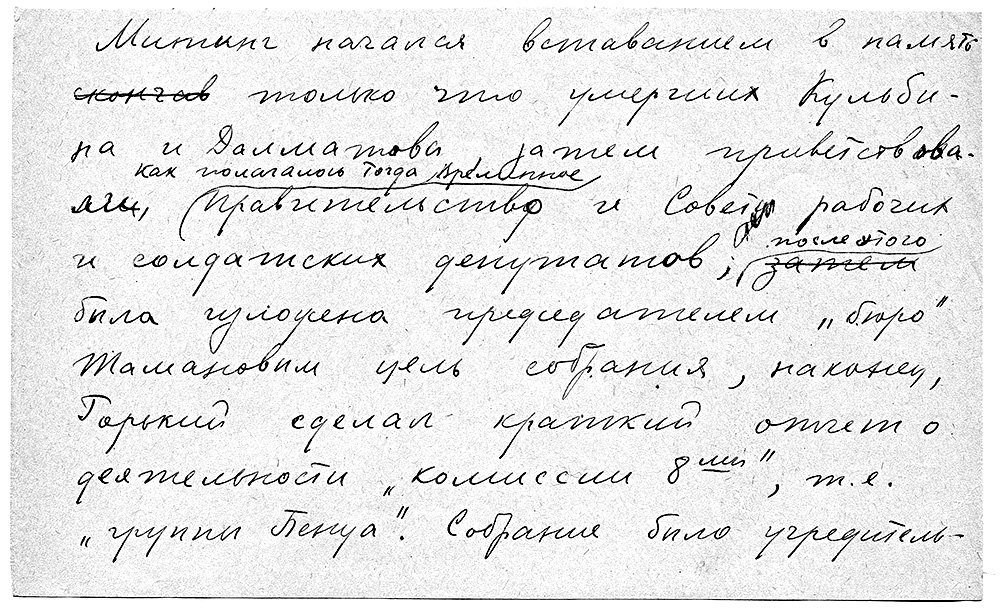 Митинг начался вставанием в память
скончав только что умерших Кульби-
на и Далматова затем приветствова-
как полагалось тогда Временное
ли, Правительство и Советы рабочих
и солдатских депутатов;
после этого
затем
была изложена председателем „бюро"
Тамановым цель собрания, наконец,
Горький сделал краткий отчет о
деятельности „комиссии 8ми", т.е.
„группы Бенуа". Собрание было учредитель-